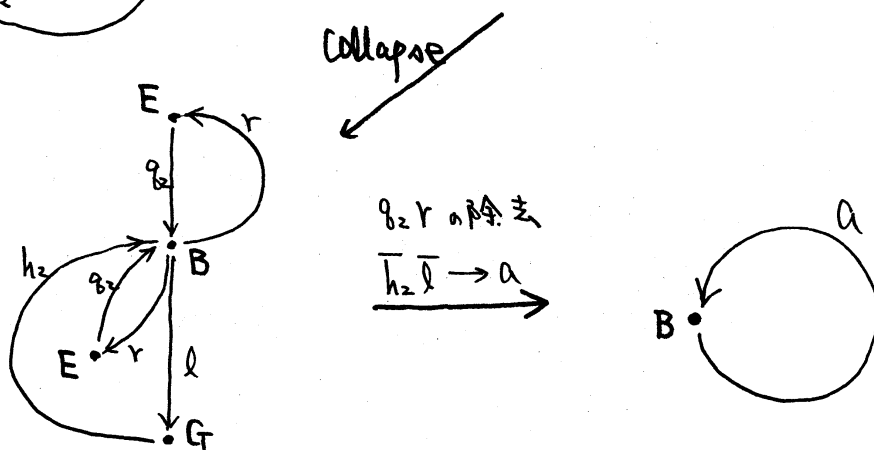 Collapse
E
r
q₂
h₂
q₂
B
E
r
l
G
q₂ r の除去
h̅₂ l̅ → a
a
B